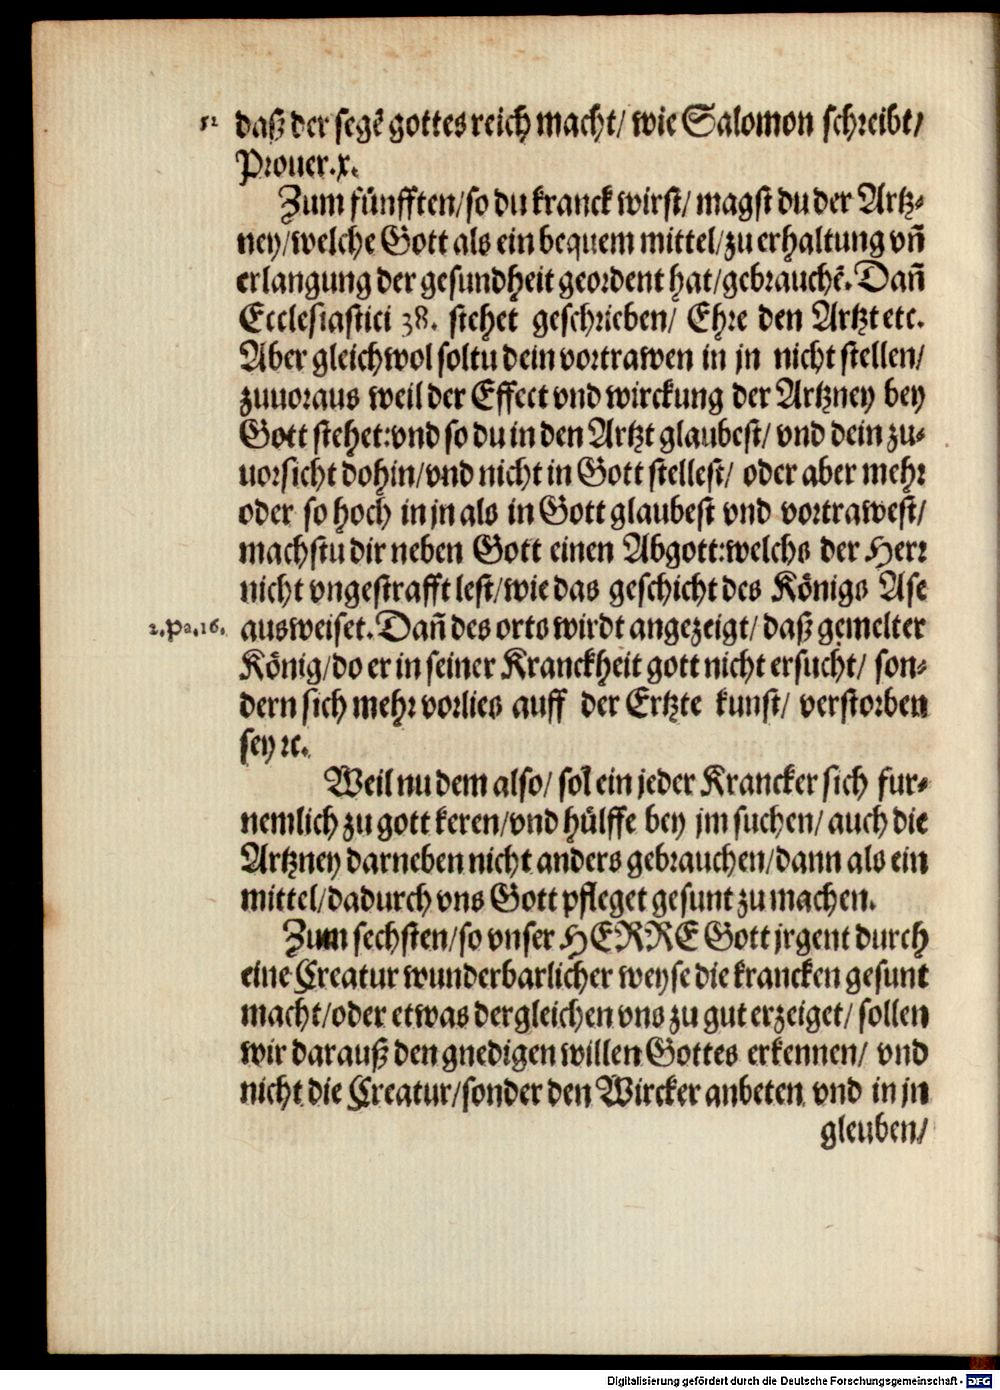 52 daß der segẽ gottes reich macht/ wie Salomon schreibt/
Prouer.x.
Zum fünfften/so du kranck wirst/ magst du der Artz⸗
ney/welche Gott als ein bequem mittel/zu erhaltung vñ
erlangung der gesundheit geordent hat/gebrauchẽ. Dañ
Ecclesiastici 38. stehet geschrieben/ Ehre den Artzt etc.
Aber gleichwol soltu dein vortrawen in jn nicht stellen/
zuuoraus weil der Effect vnd wirckung der Artzney bey
Gott stehet:vnd so du in den Artzt glaubest/ vnd dein zu⸗
uorsicht dohin/vnd nicht in Gott stellest/ oder aber mehr
oder so hoch in jn als in Gott glaubest vnd vortrawest/
machstu dir neben Gott einen Abgott:welchs der Herr
nicht vngestrafft lest/wie das geschicht des Königs Ase
2.Pa.16. ausweiset. Dañ des orts wirdt angezeigt/ daß gemelter
König/do er in seiner Kranckheit gott nicht ersucht/ son⸗
dern sich mehr vorlies auff der Ertzte kunst/ verstorben
sey ꝛc.
Weil nu dem also/ sol ein jeder Krancker sich fur⸗
nemlich zu gott keren/vnd hülffe bey jm suchen/ auch die
Artzney darneben nicht anders gebrauchen/dann als ein
mittel/dadurch vns Gott pfleget gesunt zu machen.
Zum sechsten/so vnser HERRE Gott jrgent durch
eine Creatur wunderbarlicher weyse die krancken gesunt
macht/oder etwas dergleichen vns zu gut erzeiget/ sollen
wir darauß den gnedigen willen Gottes erkennen/ vnd
nicht die Creatur/sonder den Wircker anbeten vnd in jn
gleuben/
Digitalisierung gefördert durch die Deutsche Forschungsgemeinschaft - DFG